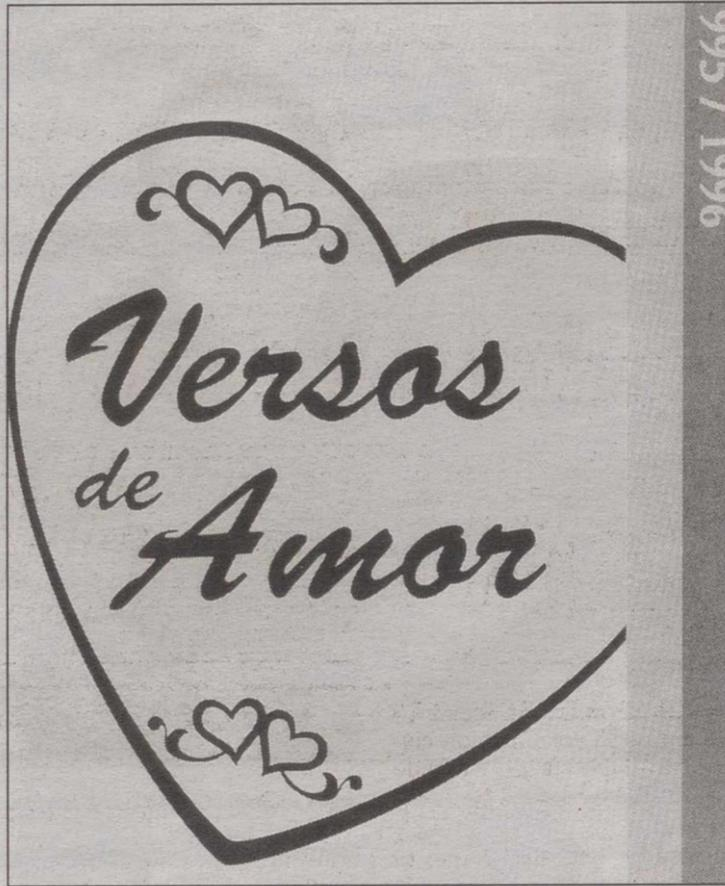 Versos
de
Amor
995 / 1996